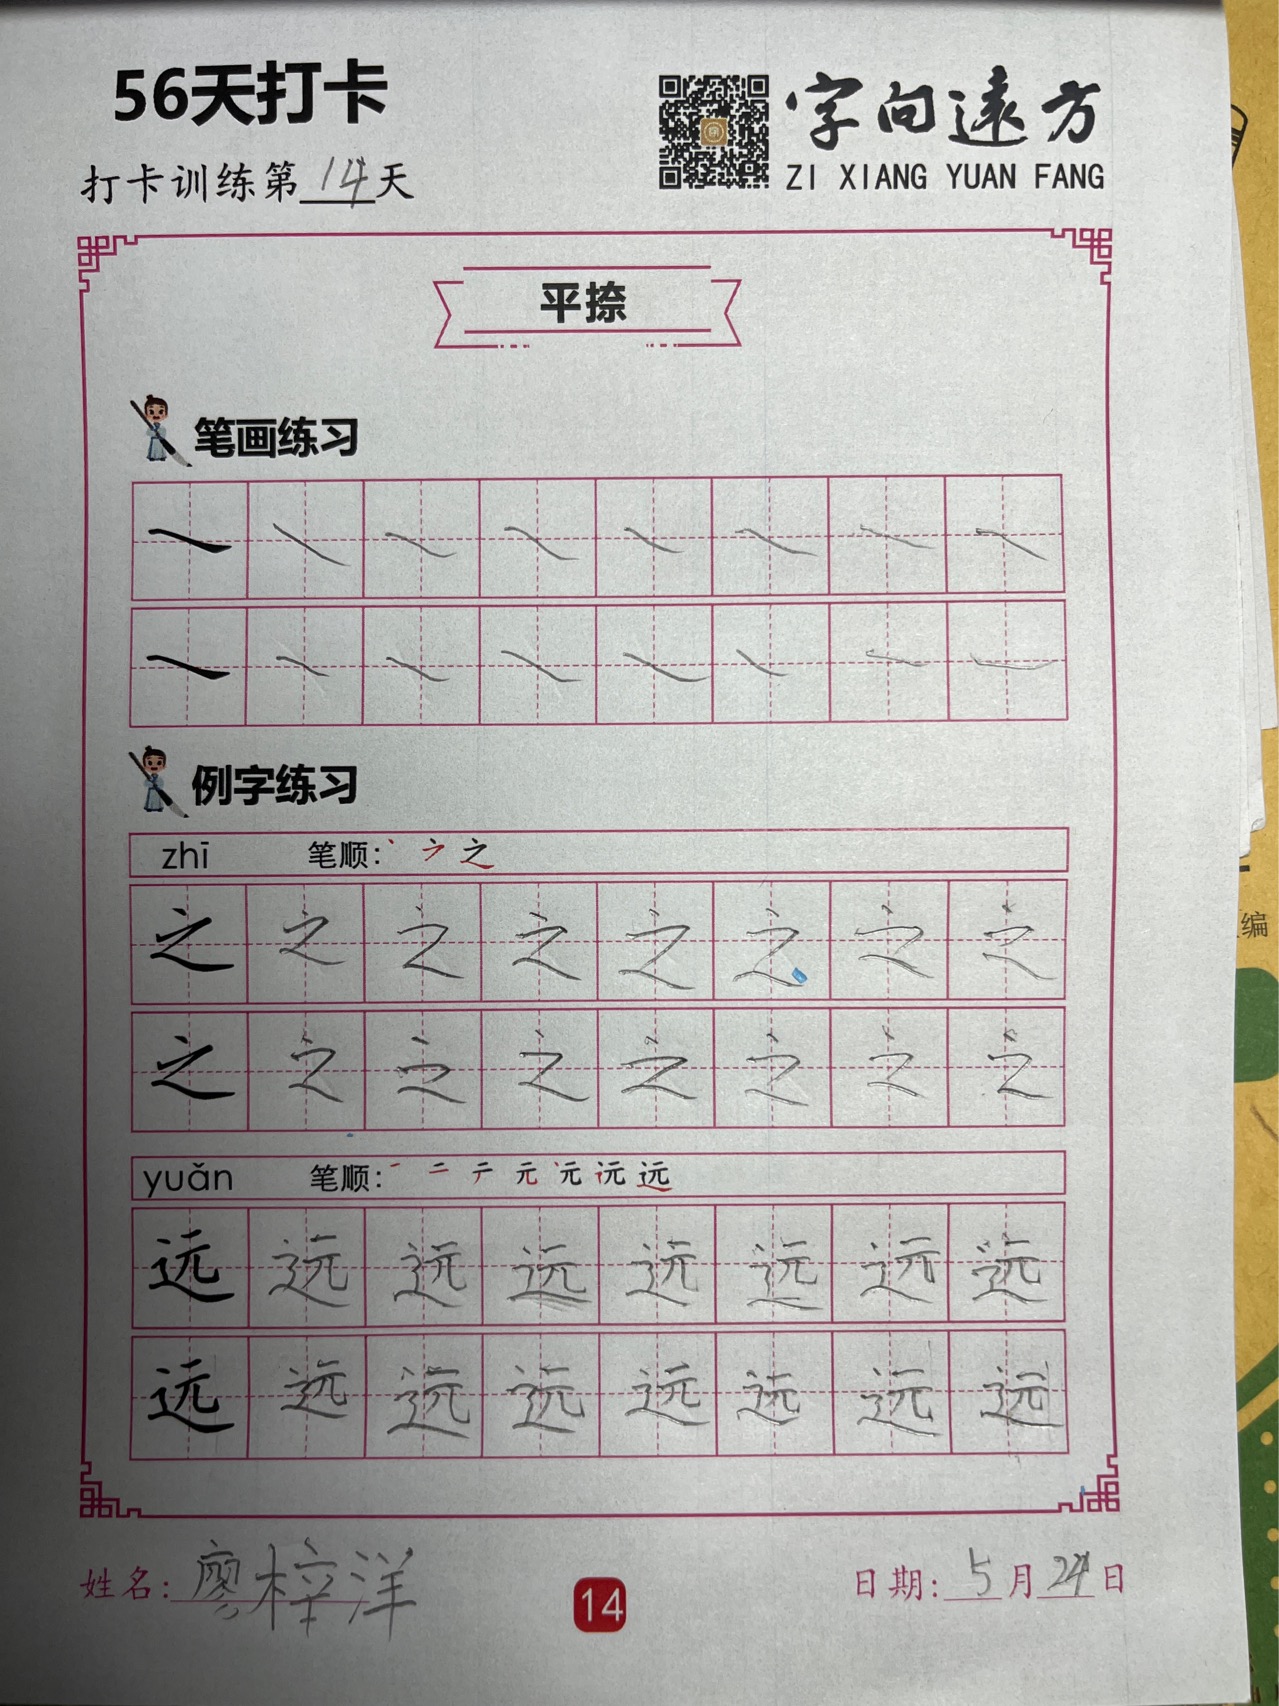 56天打卡
字向遠方
打卡训练第14天
ZI XIANG YUAN FANG
平捺
笔画练习
例字练习
zhī 笔顺: 丶 ㇇ 之
之 之 之 之 之 之 之 之
之 之 之 之 之 之 之 之
yuǎn 笔顺: 一 二 テ 元 元 远 远
远 远 远 远 远 远 远 远
远 远 远 远 远 远 远 远
姓名: 廖梓洋
14
日期: 5月24日
编